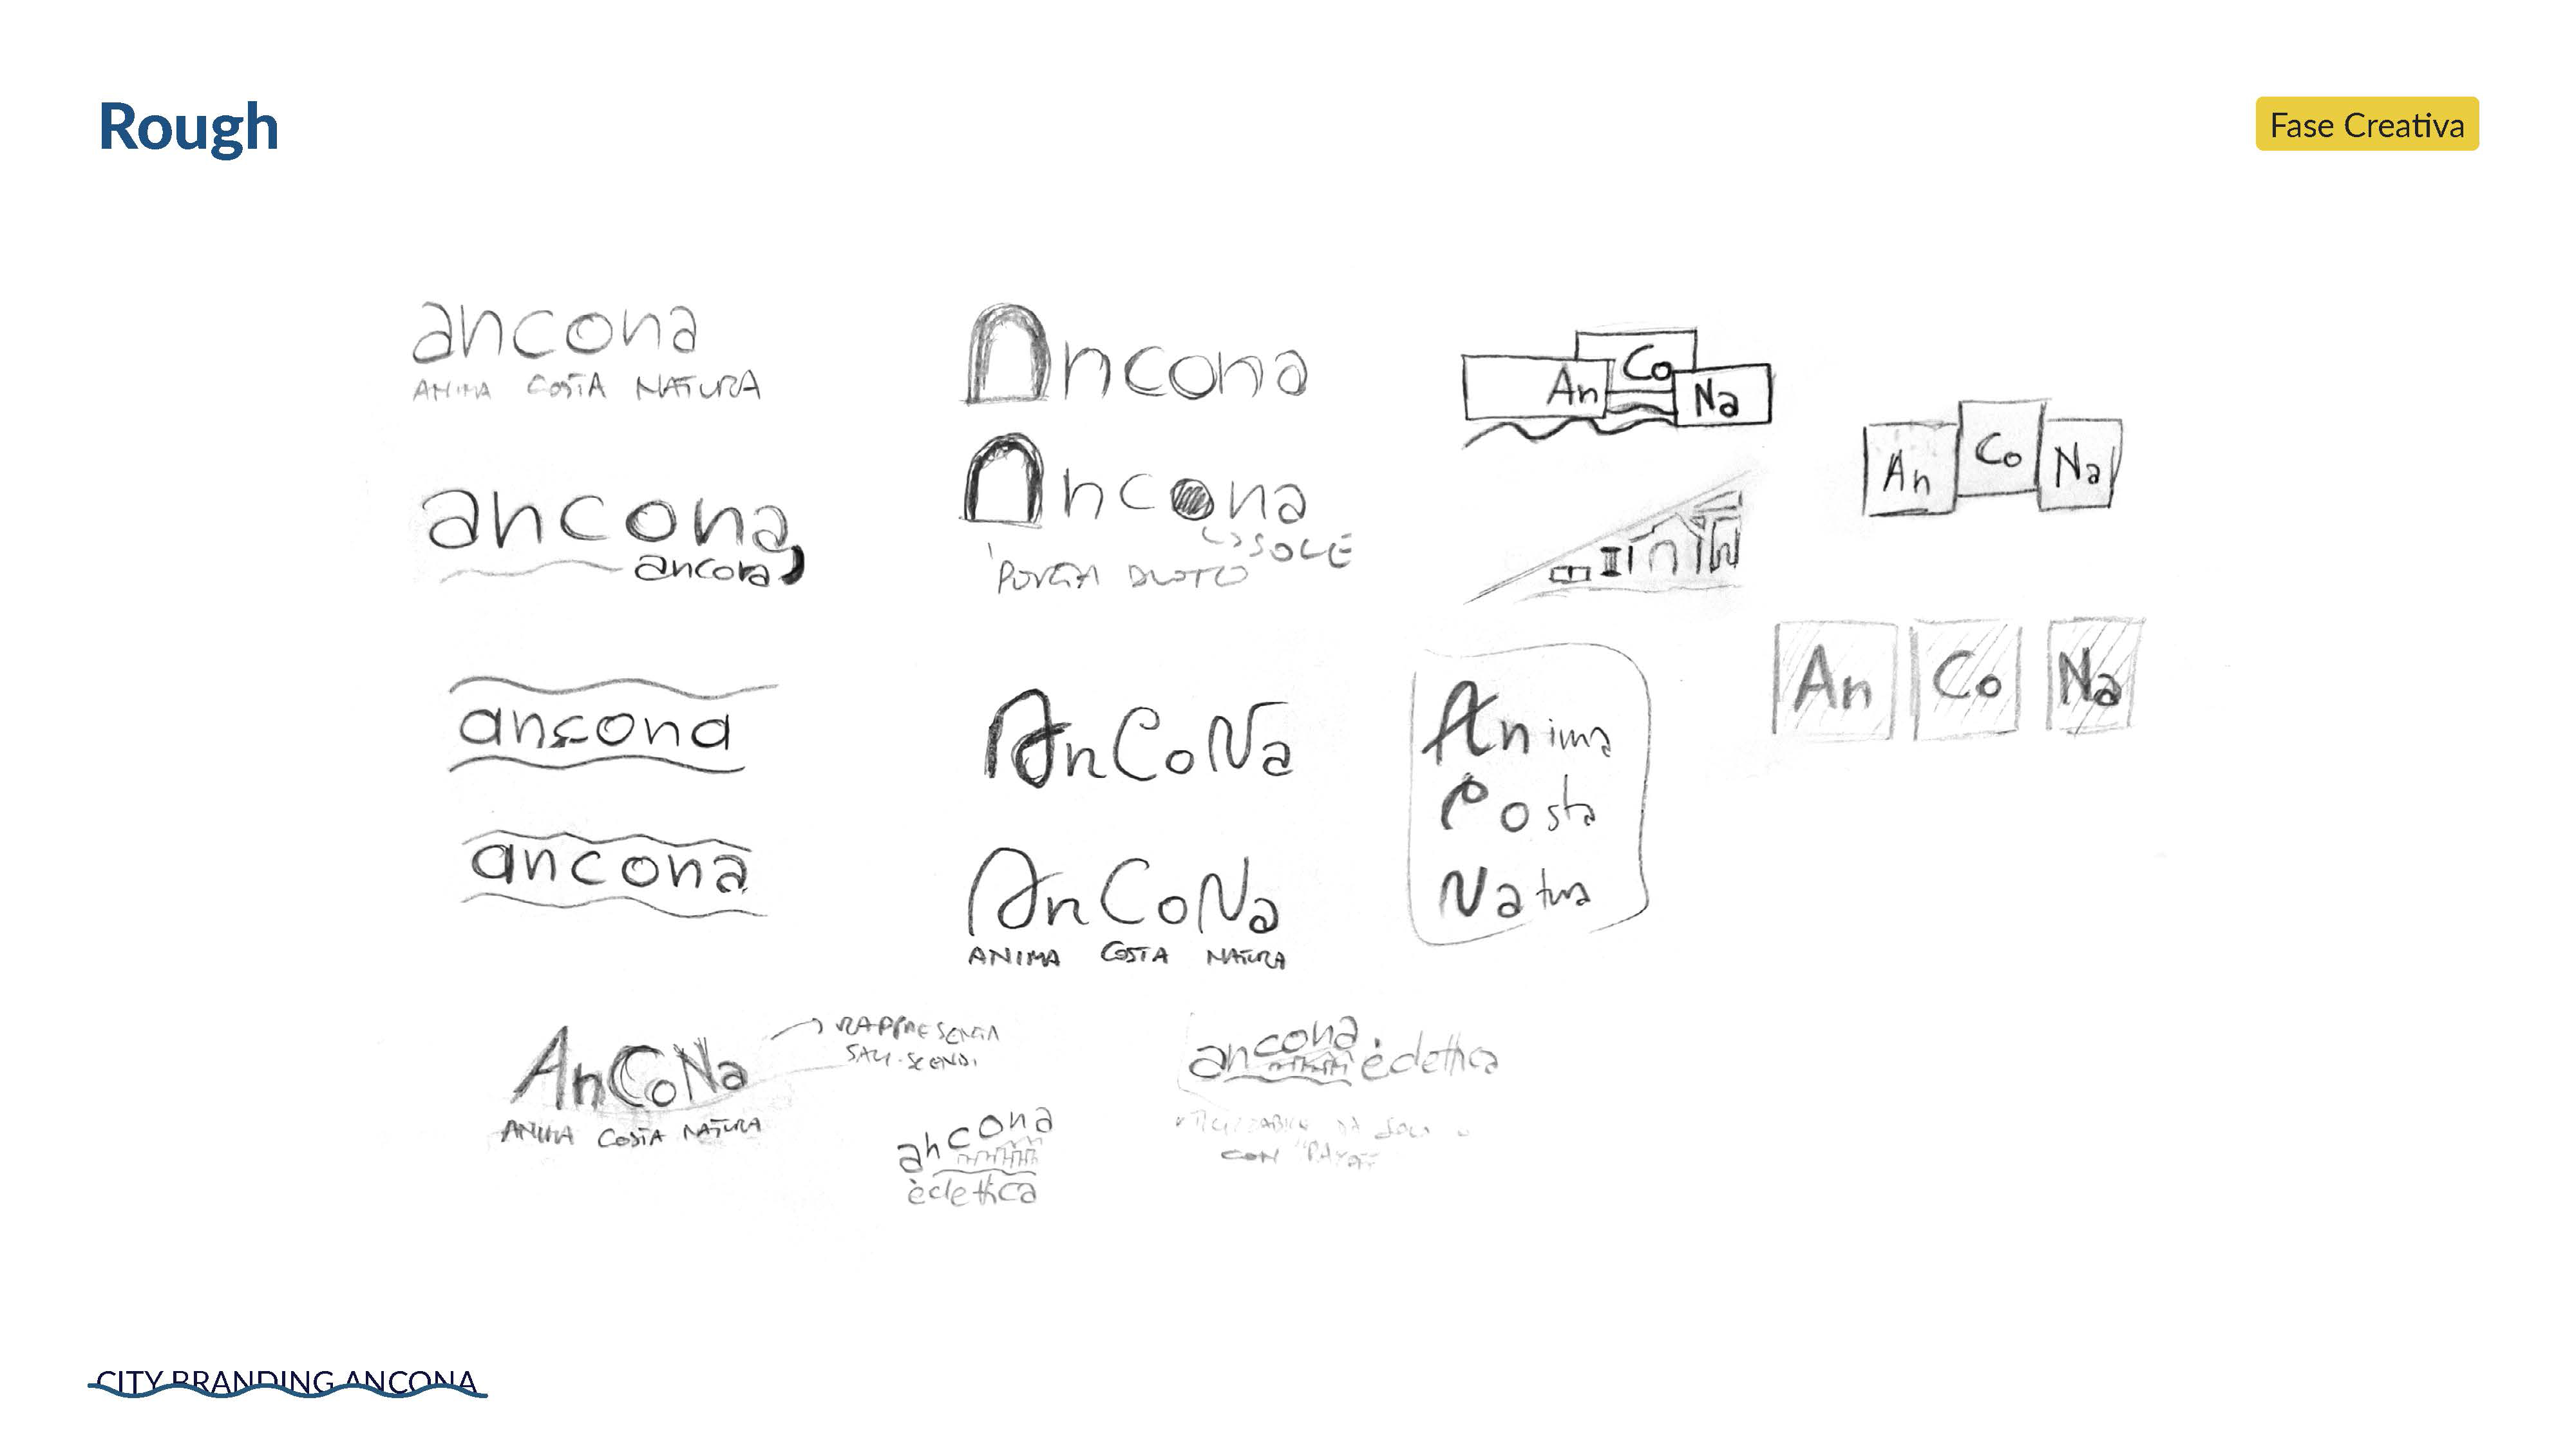 Rough
Fase Creativa
ancona
ANIMA COSTA NATURA
ancona
ancora
ancona
ancona
AnCoNa
ANIMA COSTA NATURA
RAPPRESENTA
SALI-SCENDI
ancona
èclettica
Ancona
Ancona
SOLE
AnCoNa
AnCoNa
ANIMA COSTA NATURA
ancona èclettica
CON "PAYOFF"
An Co Na
Anima
Costa
Natura
An Co Na
An Co Na
CITY BRANDING ANCONA